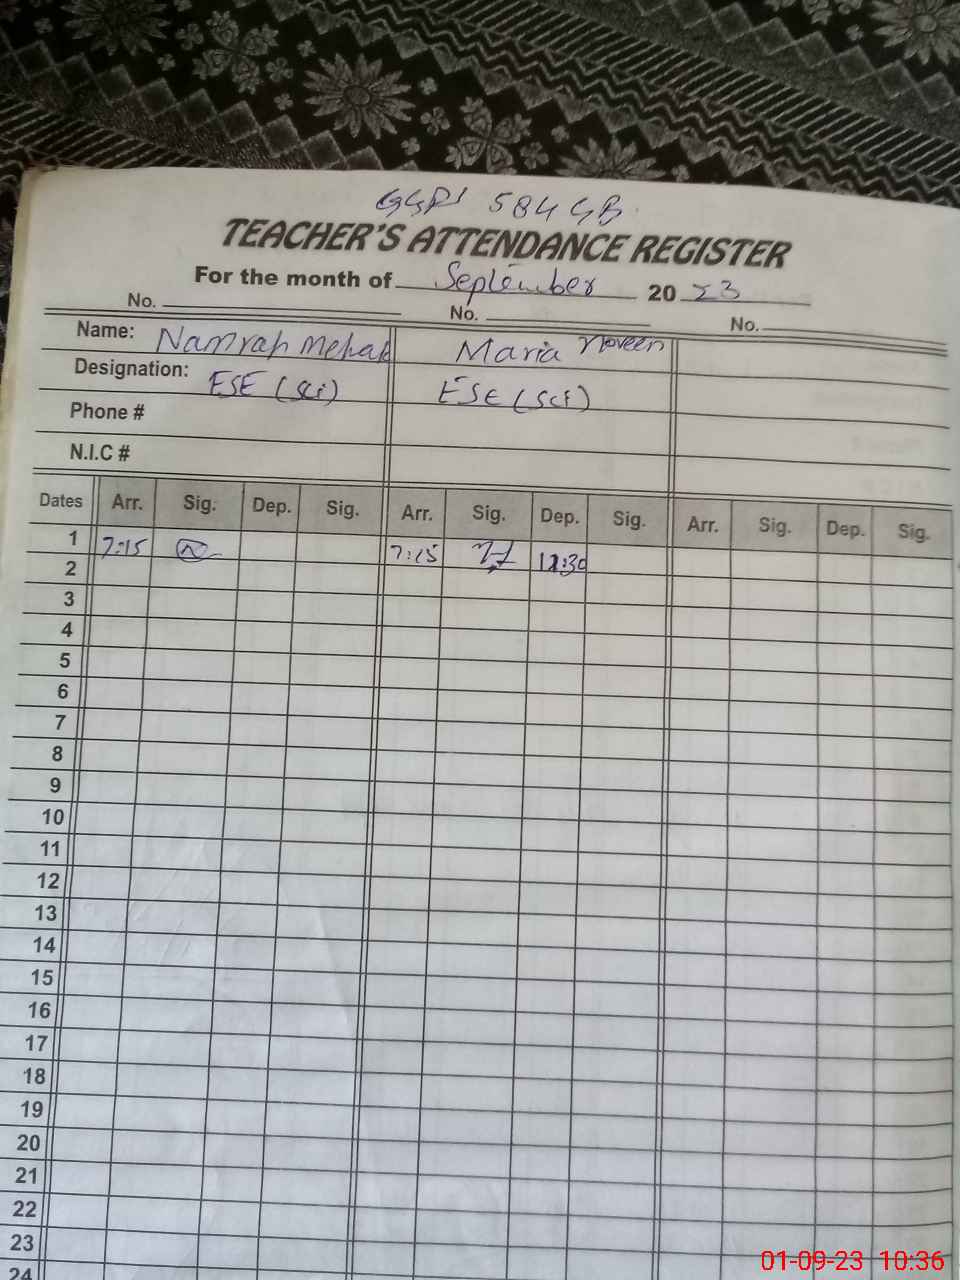 GGPS 584 GB
TEACHER'S ATTENDANCE REGISTER
For the month of September 2023
No. No. No.
Name: Namrah Mehak Maria Noveen
Designation: ESE (Sci) ESE (Sci)
Phone #
N.I.C #
Dates Arr. Sig. Dep. Sig. Arr. Sig. Dep. Sig. Arr. Sig. Dep. Sig.
1 7:15 7:15 12:30
2
3
4
5
6
7
8
9
10
11
12
13
14
15
16
17
18
19
20
21
22
23
24
01-09-23 10:36